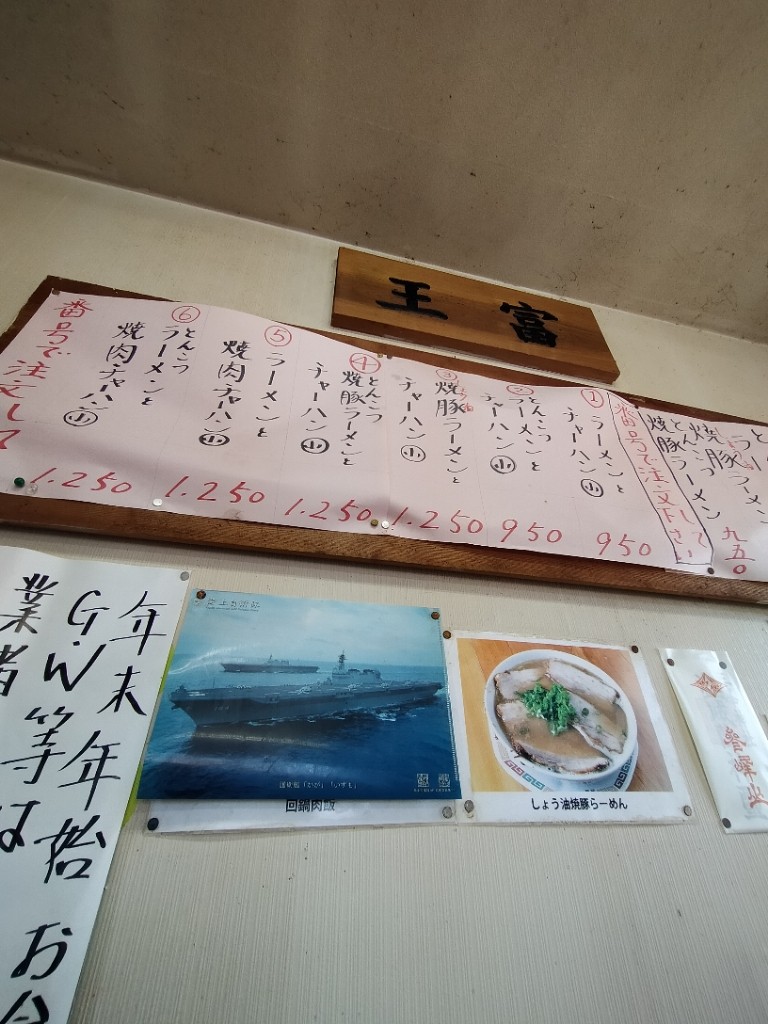 富王
焼豚
ラーメン
九五〇
とんこつ
焼豚ラーメン
番号で注文して
下さい
①
ラーメンと
チャーハン小
950
②
とんこつ
ラーメンと
チャーハン小
950
③
焼豚ラーメンと
チャーハン小
1.250
④
とんこつ
焼豚ラーメンと
チャーハン小
1.250
⑤
ラーメンと
焼肉チャーハン小
1.250
⑥
とんこつ
ラーメンと
焼肉チャーハン小
1.250
番号で注文して
年末年始
G.W等は
業者
お
護衛艦「かが」「いずも」
回鍋肉飯
しょう油焼豚らーめん